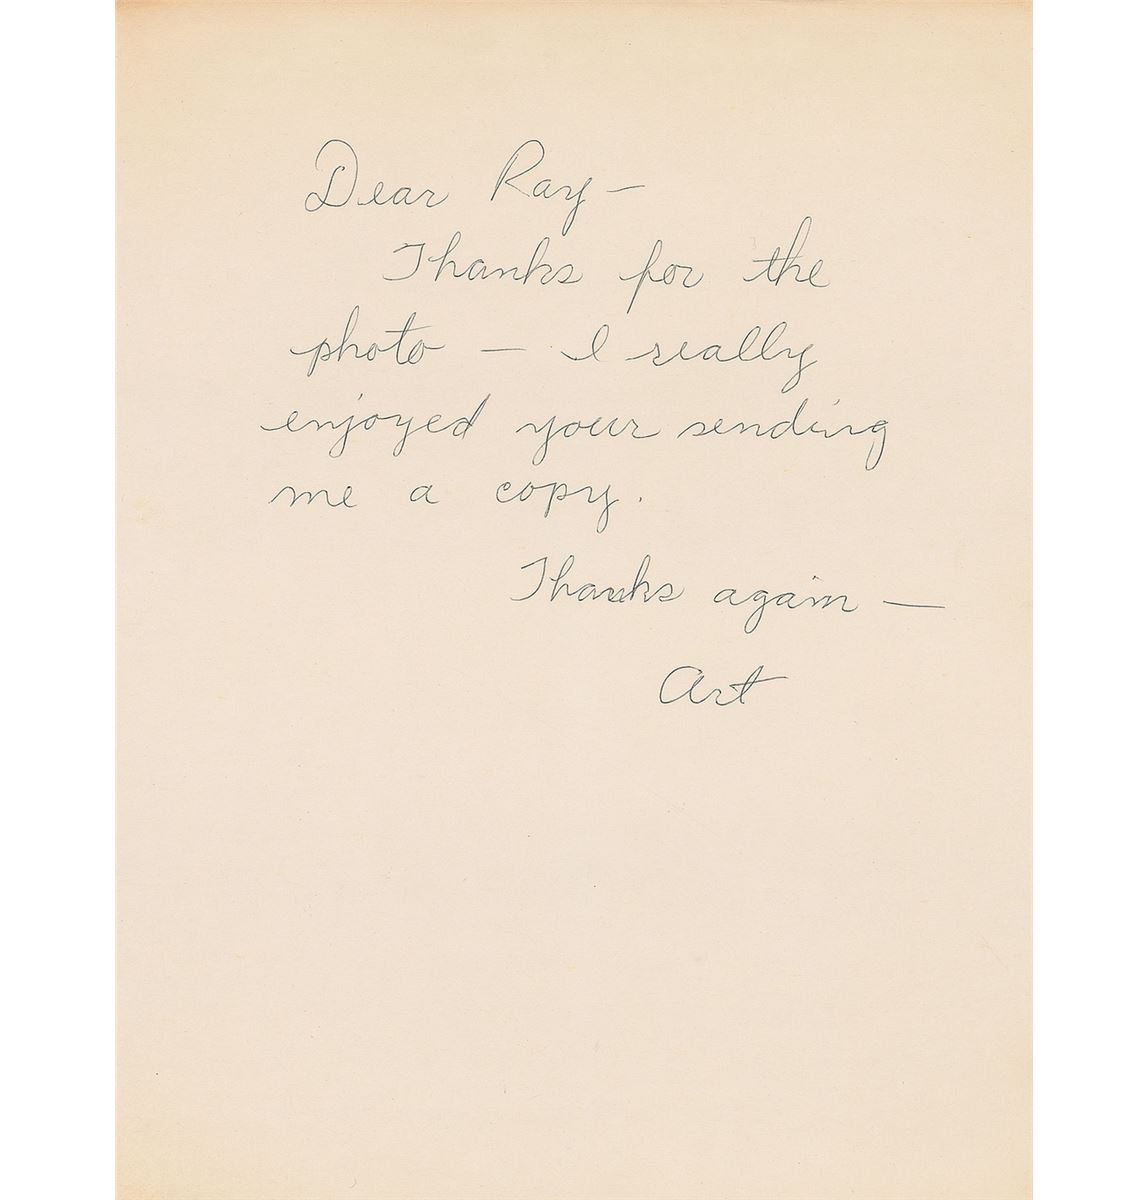 Dear Ray —
Thanks for the
photo — I really
enjoyed your sending
me a copy.
Thanks again —
Art